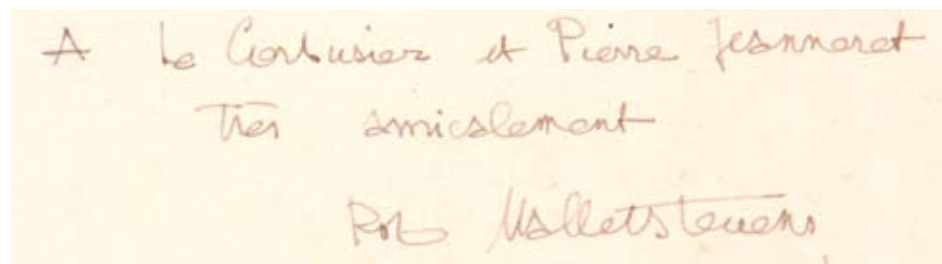 A Le Corbusier et Pierre Jeanneret
Très amicalement
Rob Mallet Stevens